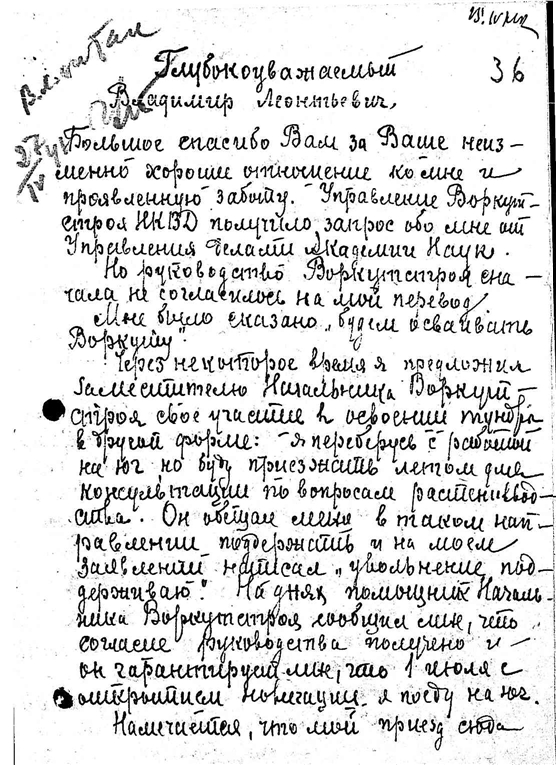 Глубокоуважаемый
36
Владимир Леонтьевич,
Большое спасибо Вам за Ваше неиз-
менно хорошее отношение ко мне и
проявленную заботу. Управление Воркут-
строя НКВД получило запрос обо мне от
Управления Делами Академии Наук.
Но руководство Воркутстроя сна-
чала не согласилось на мой перевод.
Мне было сказано „будем осваивать
Воркуту".
Через некоторое время я предложил
Заместителю Начальника Воркут-
строя свое участие в освоении тундры
в другой форме: я переберусь с работой
на юг но буду приезжать летом для
консультации по вопросам растениевод-
ства. Он обещал меня в таком нап-
равлении поддержать и на моем
заявлении написал „увольнение под-
держиваю". На днях помощник Началь-
ника Воркутстроя сообщил мне, что
согласие руководства получено и
он гарантирует мне, что 1 июля с
открытием навигации я поеду на юг.
Намечается, что мой приезд сюда